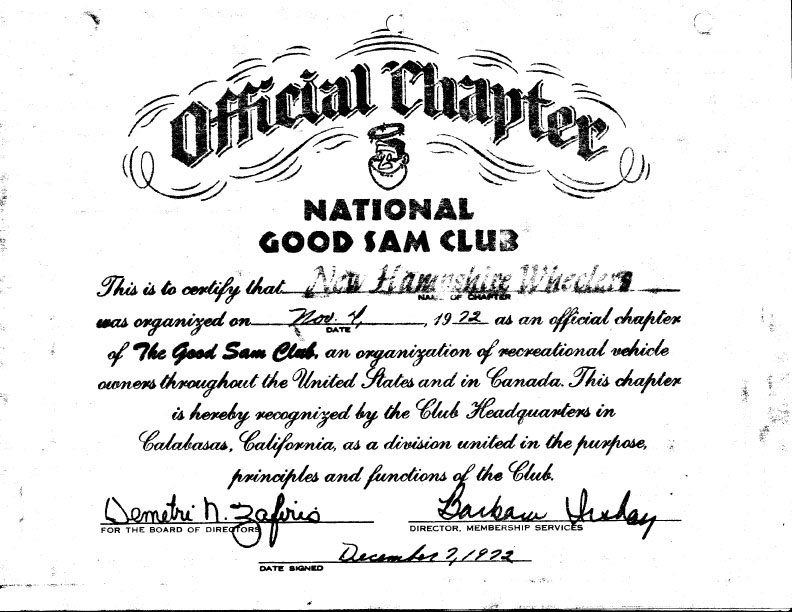 Official Chapter
NATIONAL
GOOD SAM CLUB
This is to certify that New Hampshire Wheelers
NAME OF CHAPTER
was organized on Nov. 4, 1972 as an official chapter
DATE
of The Good Sam Club, an organization of recreational vehicle
owners throughout the United States and in Canada. This chapter
is hereby recognized by the Club Headquarters in
Calabasas, California, as a division united in the purpose,
principles and functions of the Club.
Demetri N. Zafiris Barbara
FOR THE BOARD OF DIRECTORS DIRECTOR, MEMBERSHIP SERVICES
December 7, 1972
DATE SIGNED